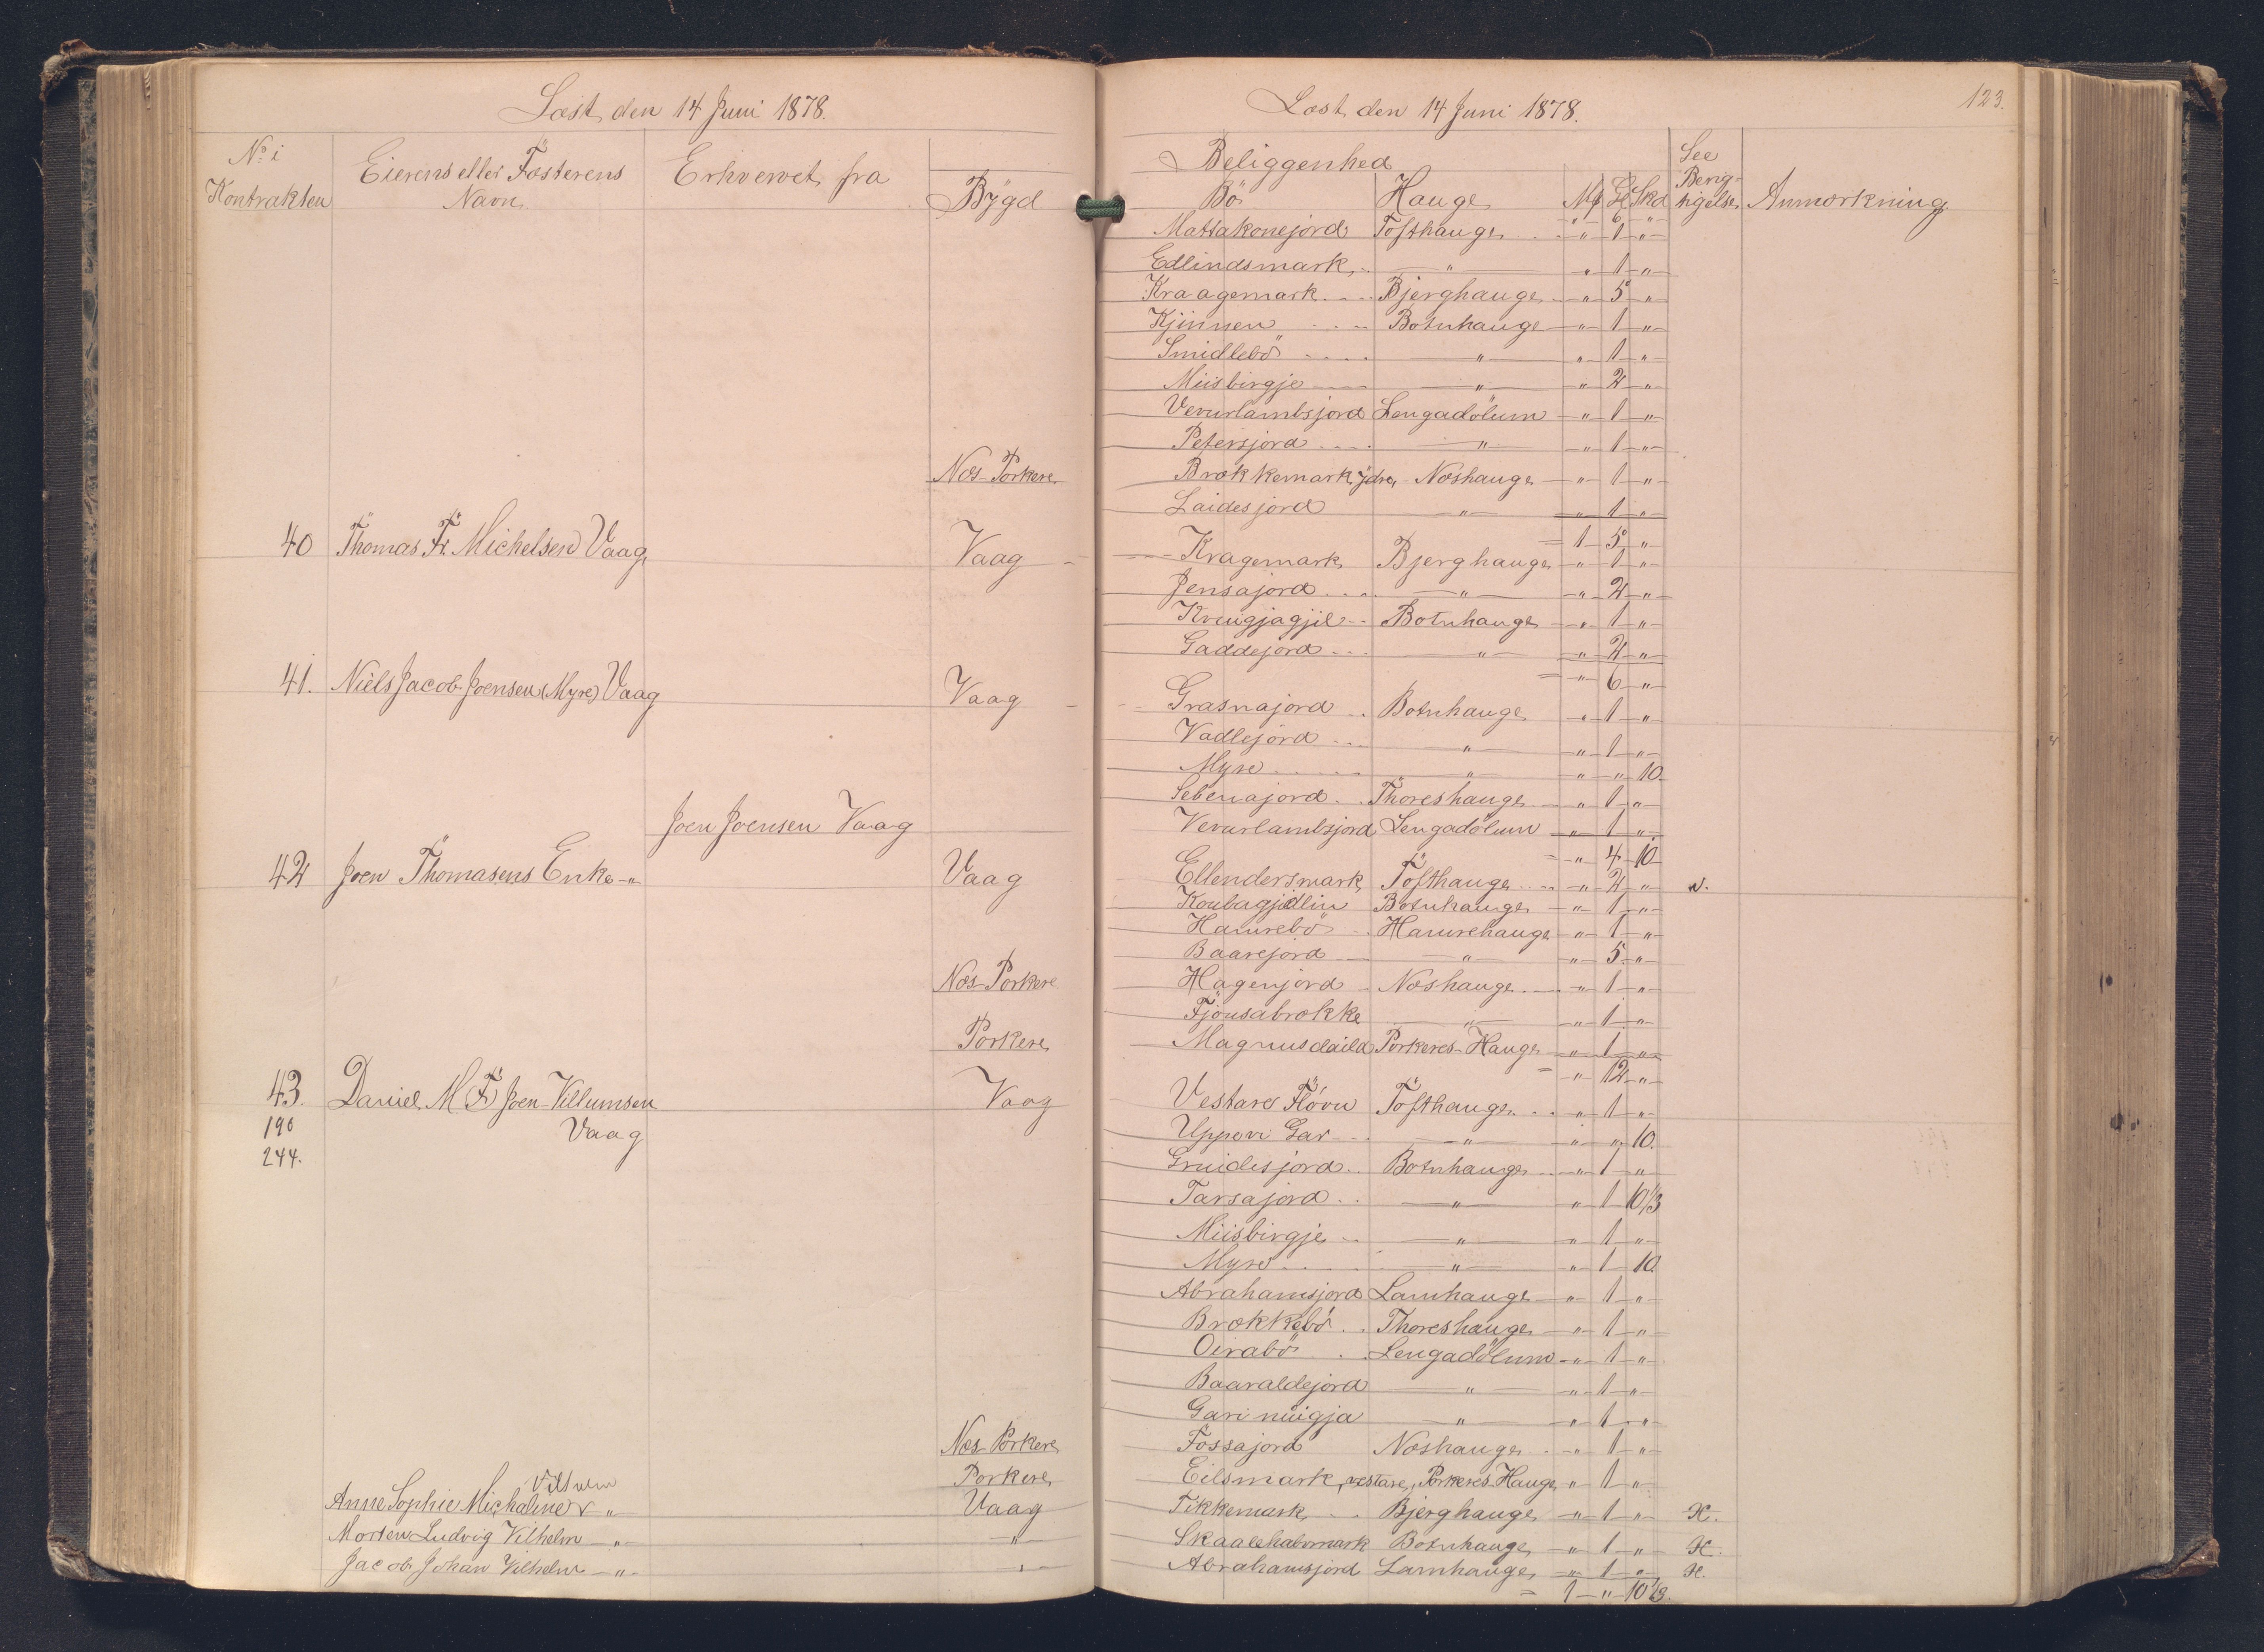 Læst den 14 Juni 1878.
No. i Kontrakten Eierens eller Fæsterens Navn. Erhvervet fra Bÿgd
Næs-Porkere
40 Thomas Fr. Michelsen Vaag Vaag
41. Niels Jacob Joensen (Myre) Vaag Vaag
Joen Joensen Vaag
42 Joen Thomasens Enke -"- Vaag
Næs-Porkere
Porkere
43. Daniel M. F. Joen-Villumsen Vaag
190 Vaag
244.
Næs Porkere
Porkere
Vilhelm
Anne Sophie Michaline v -"- Vaag
Morten Ludvig Vilhelm -"- -"-
Jacob Johan Vilhelm -"- -"-
Læst den 14 Juni 1878.
123.
Beliggenhed See
Bö Hauge Mk Gl Skd Beng-tigelse Anmærkning
" 6 "
Mattakonejord Tofthauge " 1 "
Edlindsmark " " 1 "
Kraagemark Bjerghauge " 5 "
Kjinnen Botnhauge " 1 "
Smidlebö " " 1 "
Miisbirgje " " 2 "
Verurlambsjord Lengadölum " 1 "
Petersjord " " 1 "
Brökkemark ÿdre, Næshauge " 1 "
Laidesjord " " 1 "
= 1 5 "
Kragemark Bjerghauge " 1 "
Jensajord " " 2 "
Kruigjagjil Botnhauge " 1 "
Gaddejord " " 2 "
= " 6 "
Grasnajord Botnhauge " 1 "
Vadlejord " " 1 "
Myre " " " 10
Sebenajord Thoreshauge " 1 "
Verurlambsjord Lengadölum " 1 "
= " 4 10
Ellendersmark Töfthauge " 2 " v.
Koubagjidlin Botnhauge " 1 "
Hamrebö Hamrehauge " 1 "
Baarejord " " 5 "
Hagenjord Næshauge " 1 "
Fjönsabrökke " " 1 "
Magnusdaild Porkeres-Hauge " 1 "
= " 12 "
Vestare Flövu Töfthauge " 1 "
Upperi Gar " " " 10.
Gruidesjord Botnhauge " 1 "
Tarsajord " " 1 10 1/3
Miisbirgje " " 1 "
Myre " " 1 10.
Abrahamsjord Lamhauge " 1 "
Brökkebö Thoreshauge " 1 "
Oirabö Lengadölum " 1 "
Baaraldejord " " 1 "
Gari nuigja " " 1 "
Fössajord Næshauge " 1 "
Eilsmark, vestare, Porkeres-Hauge " 1 "
Tikkemark Bjerghauge " 1 " H.
Skaalehalsmark Botnhauge " 1 " H.
Abrahamsjord Lamhauge " 1 " H.
= 1 " 10 1/3.